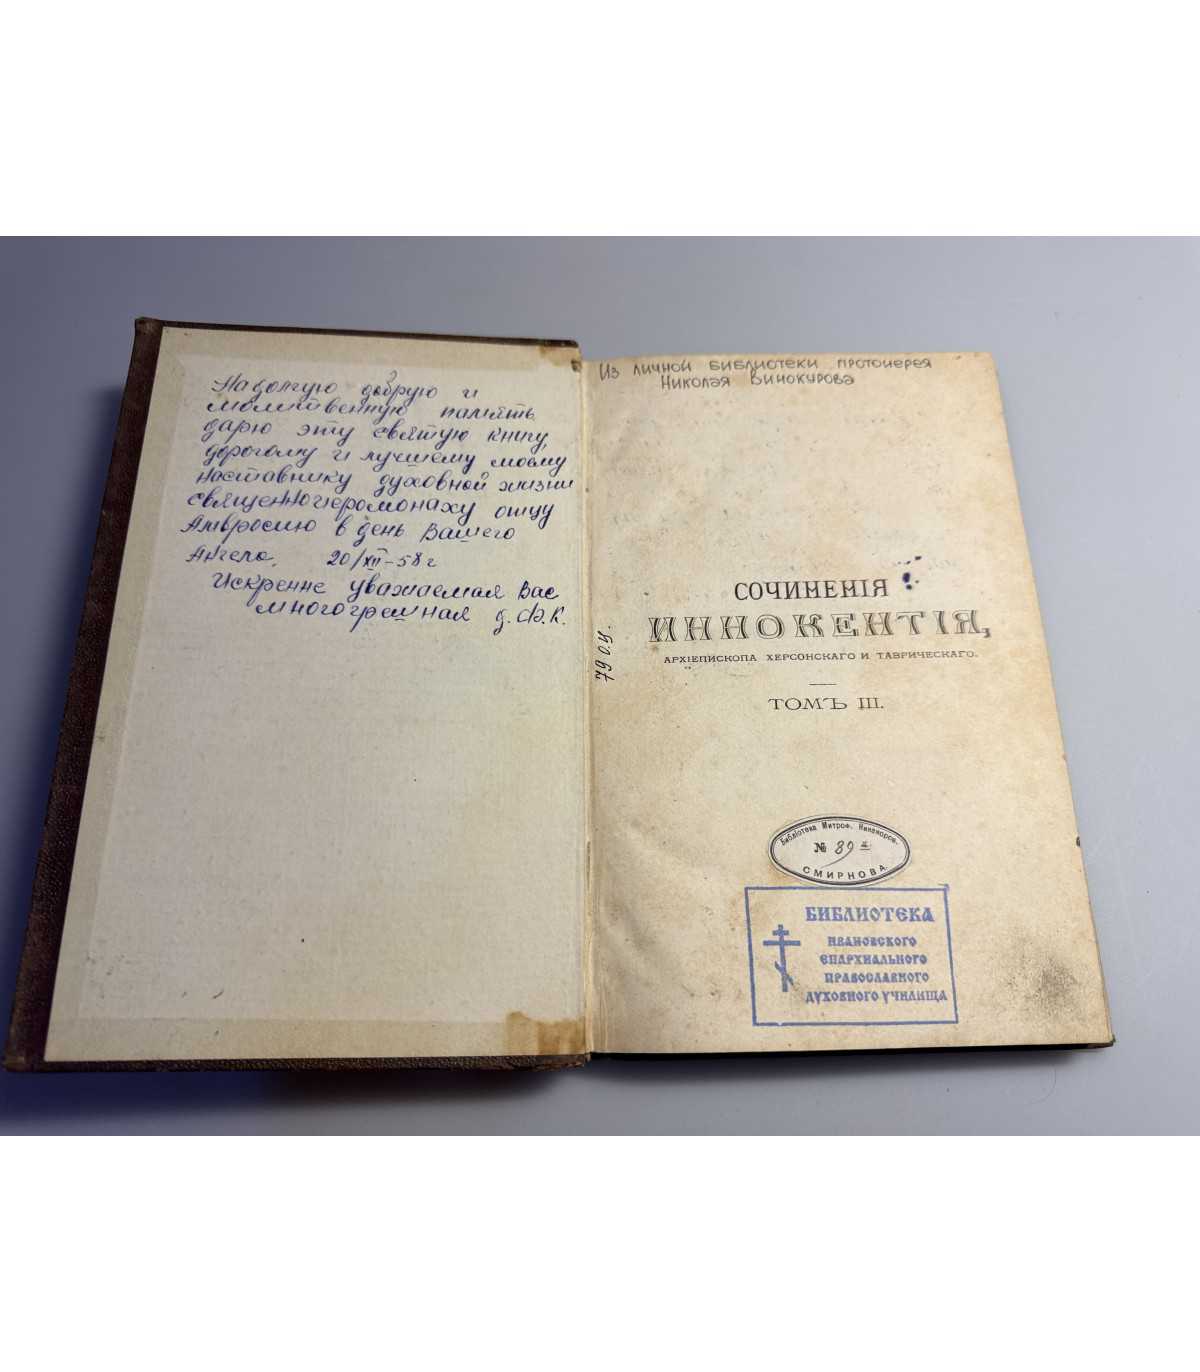 На долгую добрую и
молитвенную память
дарю эту святую книгу,
дорогому и лучшему моему
наставнику духовной жизни
священноиеромонаху отцу
Амвросию в день Вашего
Ангела. 20/XII-58 г
Искренне уважаемая Вас
многогрешная д. Ф. К.
Из личной библиотеки протоиерея
Николая Винокурова
СОЧИНЕНІЯ
ИННОКЕНТІЯ,
АРХІЕПИСКОПА ХЕРСОНСКАГО И ТАВРИЧЕСКАГО.
ТОМЪ III.
Библіотека Митроф. Никаноров.
№ 89
СМИРНОВА
БИБЛИОТЕКА
ИВАНОВСКОГО
ЕПАРХИАЛЬНОГО
ПРАВОСЛАВНОГО
ДУХОВНОГО УЧИЛИЩА